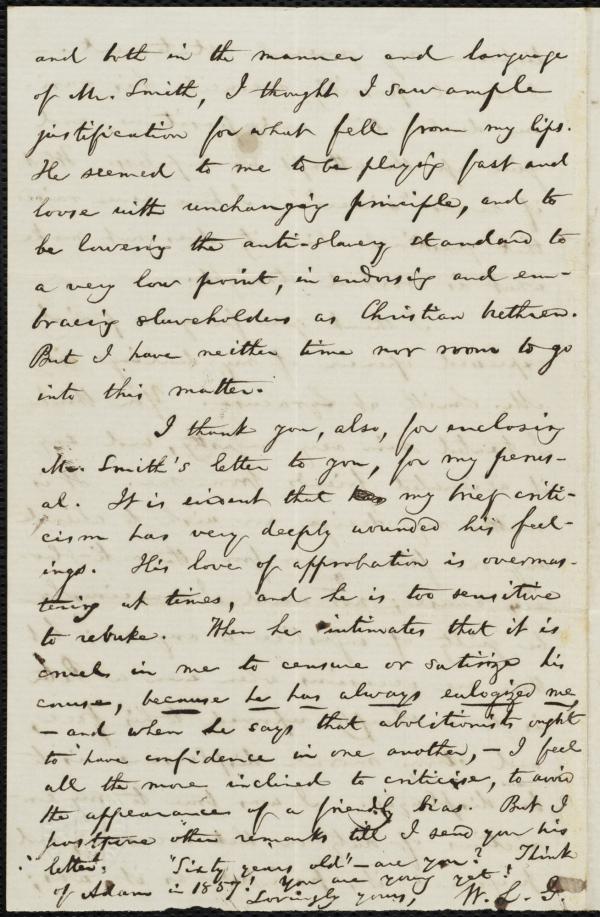 and both in the manner and language
of Mr. Smith, I thought I saw ample
justification for what fell from my lips.
He seemed to me to be playing fast and
loose with unchanging principle, and to
be lowering the anti-slavery standard to
a very low point, in endorsing and em-
bracing slaveholders as Christian brethren.
But I have neither time nor room to go
into this matter.
I thank you, also, for enclosing
Mr. Smith's letter to you, for my perus-
al. It is evident that my brief criti-
cism has very deeply wounded his feel-
ings. His love of approbation is overmas-
tering at times, and he is too sensitive
to rebuke. When he intimates that it is
cruel in me to censure or satirize his
course, because he has always eulogized me,
– and when he says that abolitionists ought
to have confidence in one another, – I feel
all the more inclined to criticise, to avoid
the appearance of a friendly bias. But I
postpone other remarks till I send you his
letter. "Sixty years old" – are you? Think
of Adam in 1857! You are young yet!
Lovingly yours, W. L. G.